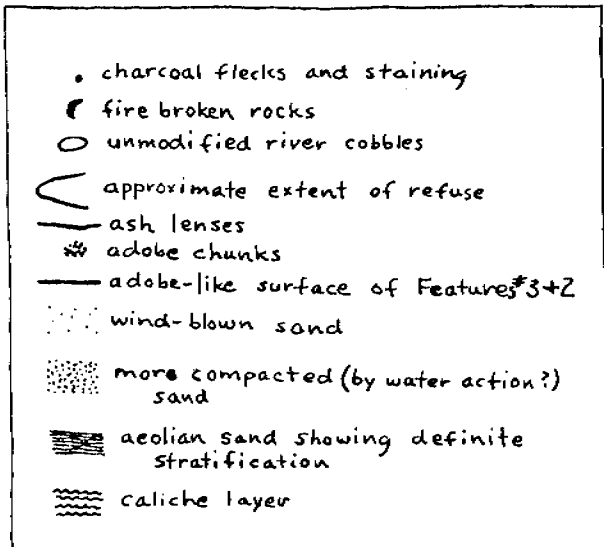 charcoal flecks and staining
fire broken rocks
unmodified river cobbles
approximate extent of refuse
ash lenses
adobe chunks
adobe-like surface of Features #3+2
wind-blown sand
more compacted (by water action?)
sand
aeolian sand showing definite
stratification
caliche layer